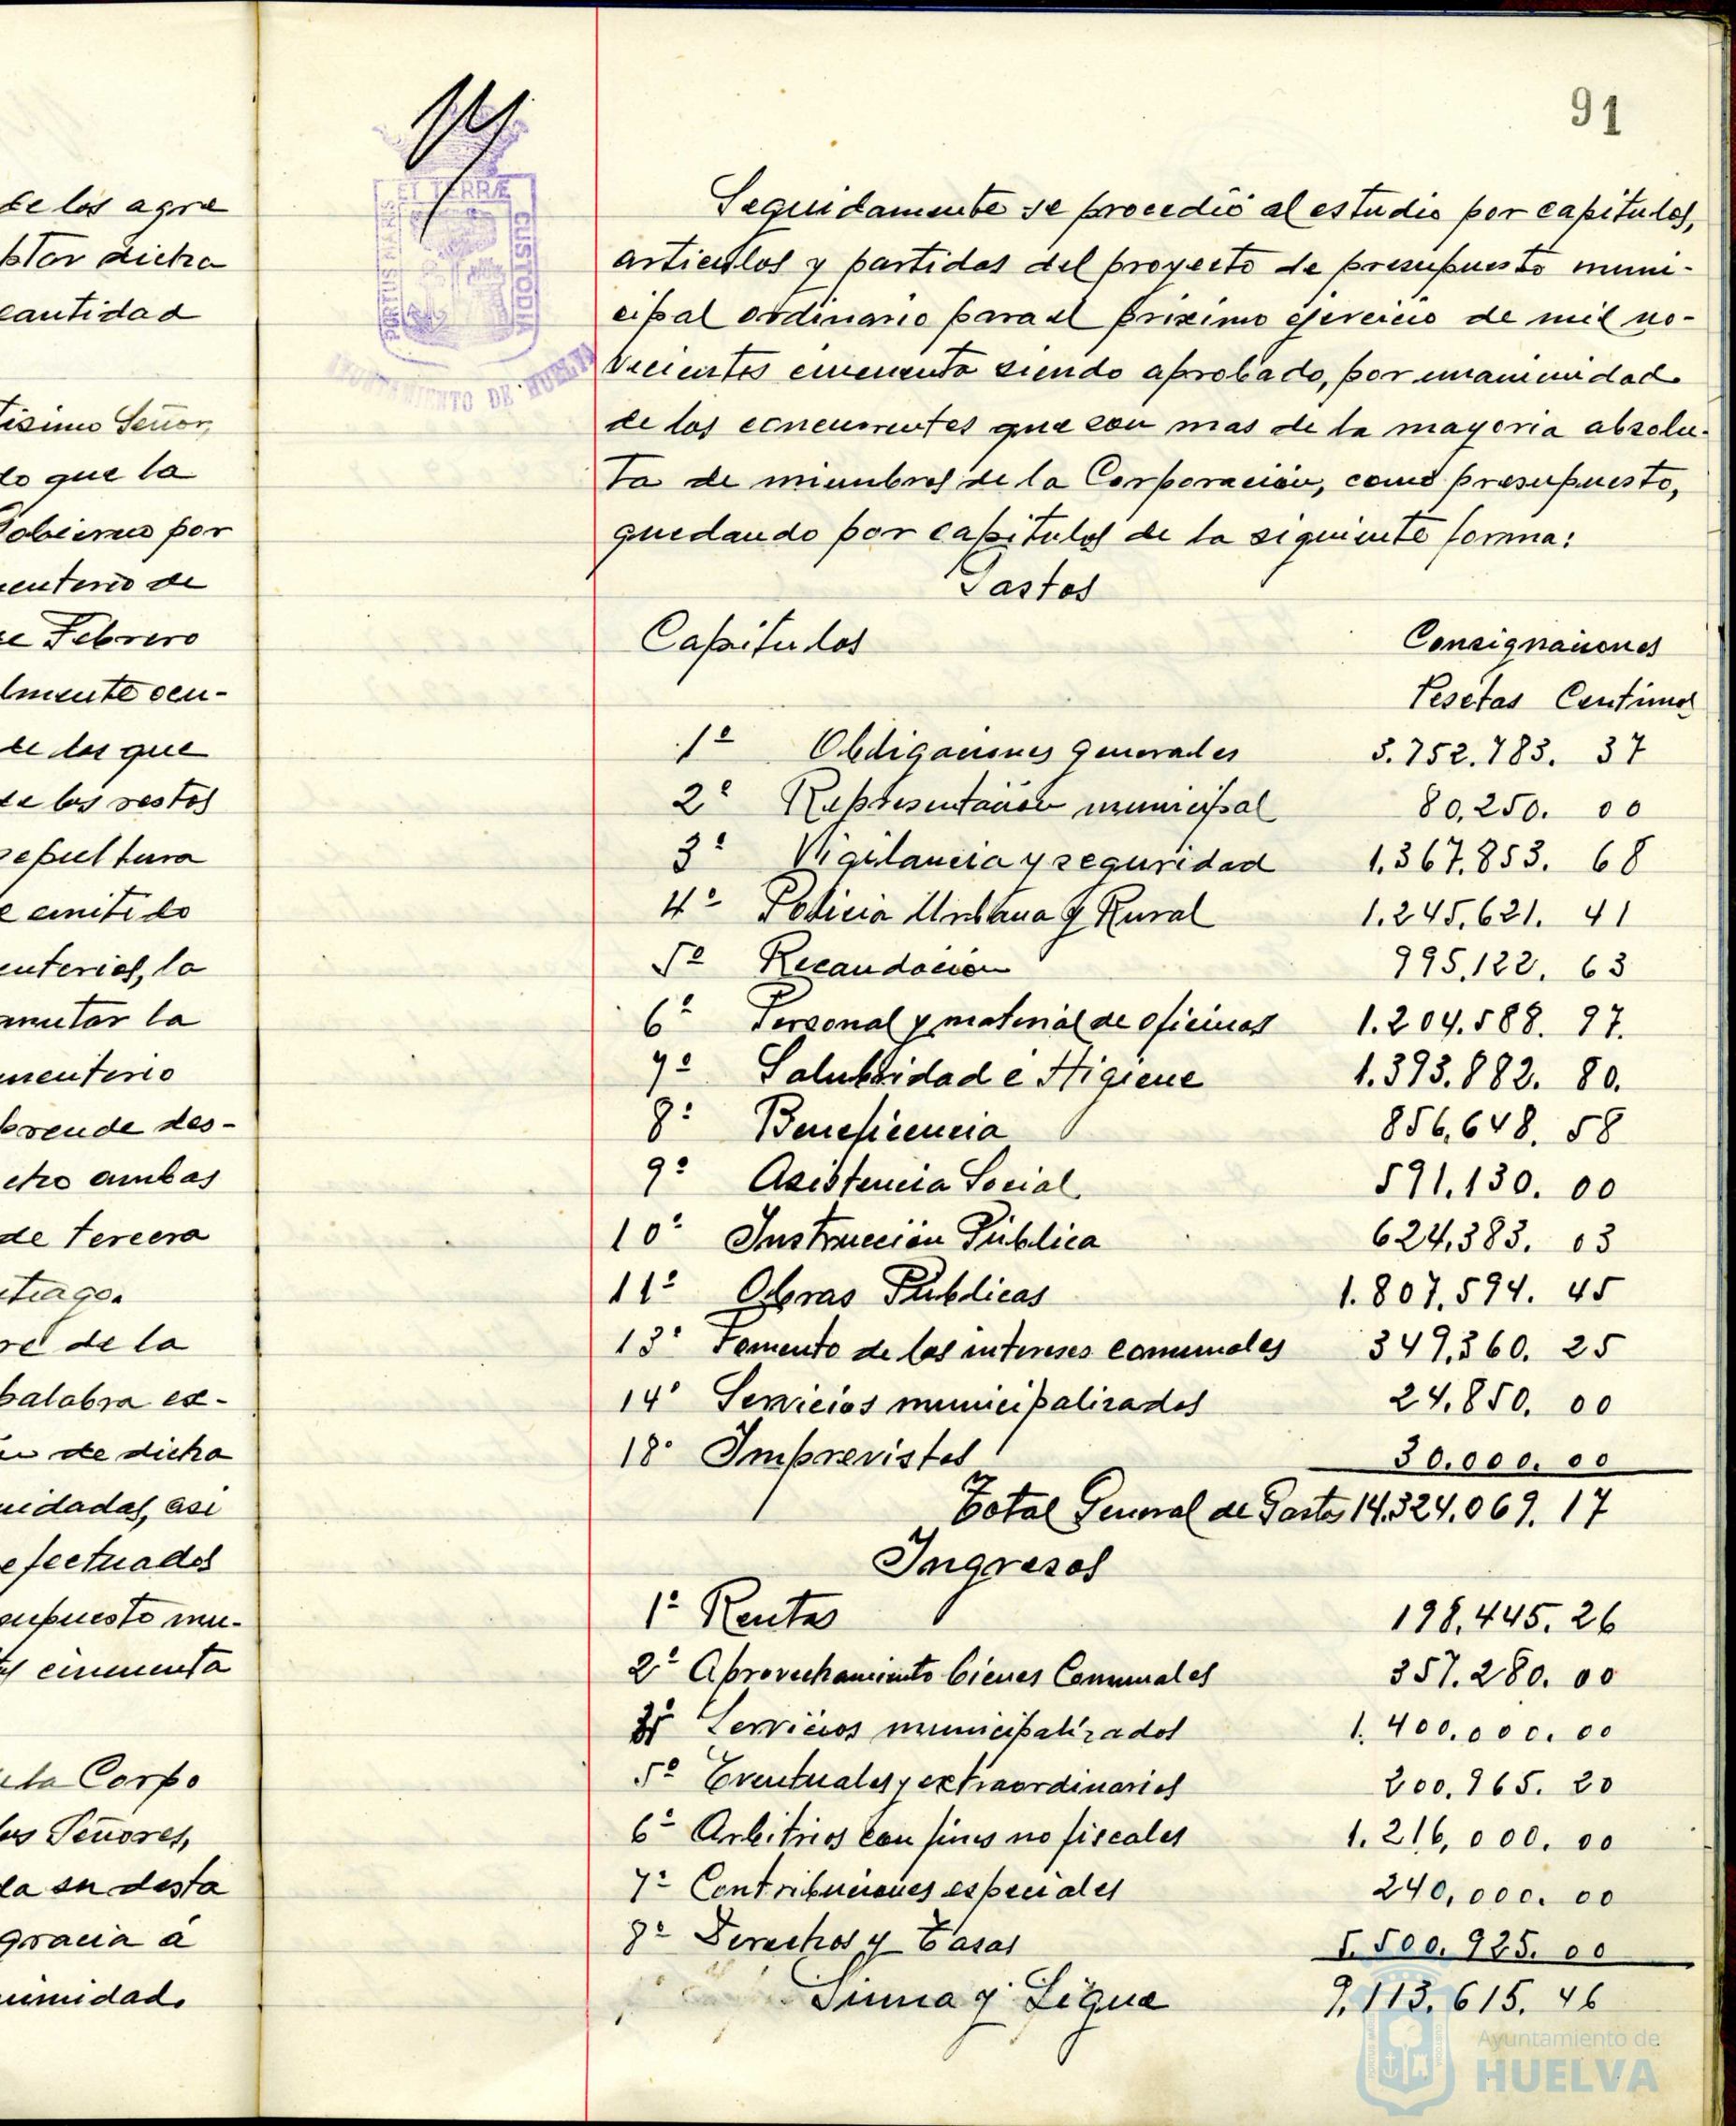 de los agre
ptar dicha
cantidad
tisimo Señor,
do que la
Gobierno por
enterio de
de Febrero
lmente ocu-
de los que
de los restos
sepultura
e emitido
enterios, la
mutar la
menterio
prende des-
cho ambas
de tercera
tiago.
re de la
palabra ex-
de dicha
uidadas, asi
efectuados
supuesto mu-
cincuenta
la Corpo
os Señores,
la su desta
gracia á
imidad.
PORTUS MARIS ET TERRÆ CUSTODIA
AYUNTAMIENTO DE HUELVA
91
Seguidamente se procedió al estudio por capitulos,
articulos y partidas del proyecto de presupuesto muni-
cipal ordinario para el próximo ejercicio de mil no-
vecientos cincuenta siendo aprobado, por unanimidad
de los concurrentes que son mas de la mayoria absolu-
ta de miembros de la Corporación, como presupuesto,
quedando por capitulos de la siguiente forma:
Gastos
Capitulos Consignaciones
Pesetas Centimos
1º Obligaciones generales 3.752.783. 37
2º Representación municipal 80.250. 00
3º Vigilancia y seguridad 1.367.853. 68
4º Policia Urbana y Rural 1.245.621. 41
5º Recaudación 995.122. 63
6º Personal y material de oficinas 1.204.588. 97.
7º Salubridad e Higiene 1.393.882. 80.
8º Beneficencia 856.648. 58
9º Asistencia Social. 591.130. 00
10º Instrucción Pública 624.383. 03
11º Obras Públicas 1.807.594. 45
13º Fomento de los intereses comunales 349.360. 25
14º Servicios municipalizados 24.850. 00
18º Imprevistos 30.000. 00
Total General de Gastos 14.324.069. 17
Ingresos
1º Rentas 198.445. 26
2º Aprovechamiento bienes Comunales 357.280. 00
3º Servicios municipalizados 1.400.000. 00
5º Eventuales y extraordinarios 200.965. 20
6º Arbitrios con fines no fiscales 1.216.000. 00
7º Contribuciones especiales 240.000. 00
8º Derechos y Tasas 5.500.925. 00
Suma y Sigue 9.113.615. 46
Ayuntamiento de
HUELVA